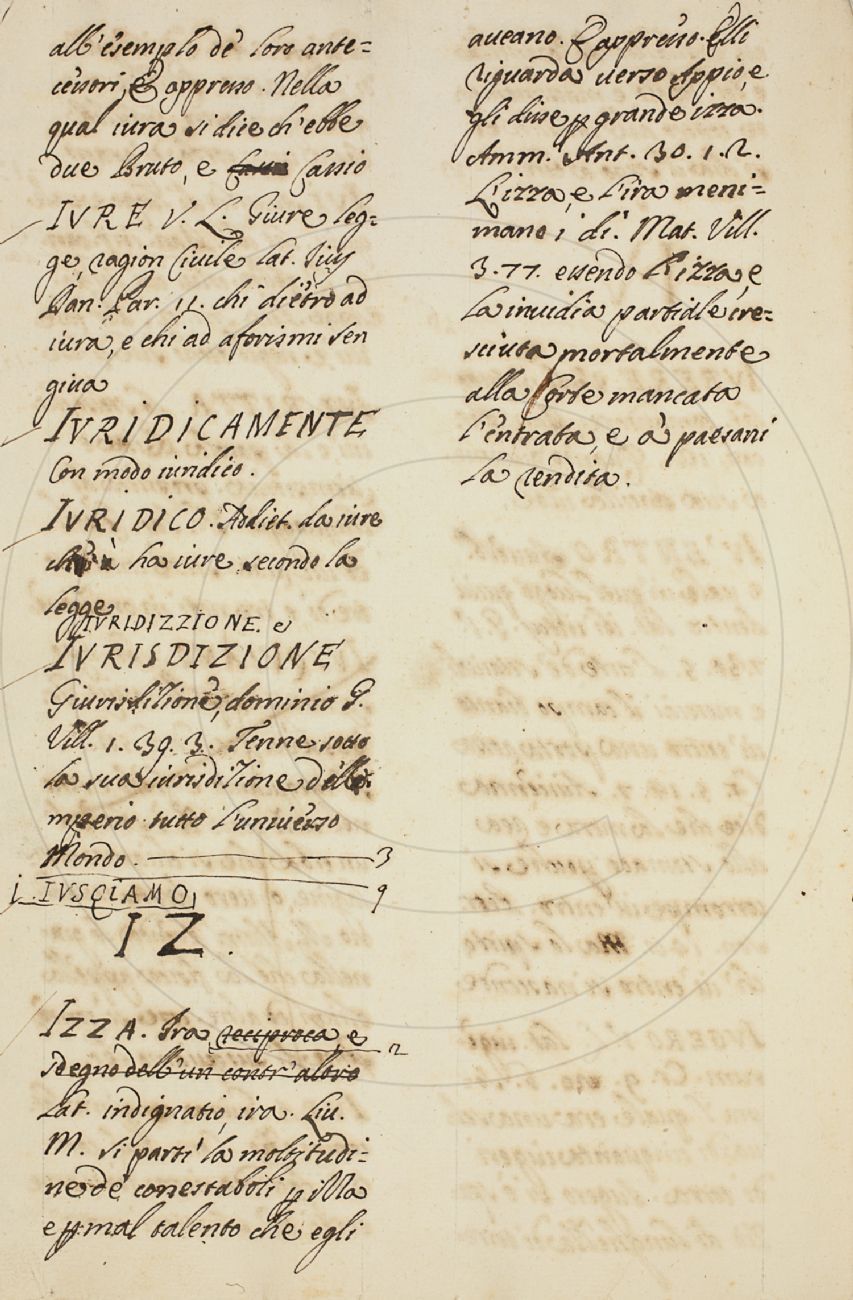 all'esemplo de' loro ante=
cessori, & appresso. Nella
qual iura si dice ch'ebbe
due Bruto, e Cassio
IVRE V. L. Giure leg=
ge, ragion Civile Lat. Jus
Dan. Par. 11. chi dietro ad
iura, e chi ad aforismi sen
giva
IVRIDICAMENTE
Con modo iuridico.
IVRIDICO. Addiet. da iure
ha iure, secondo la
legge
IVRIDIZZIONE. e
IVRISDIZIONE
Giurisdizione, dominio G.
Vill. 1. 39. 3. Tenne sotto
la sua iurisdizione dello
mperio tutto l'universo
Mondo. 3
IVSQIAMO 9
IZ.
IZZA. Ira reciproca, e 2
sdegno dell'un contr'altro
Lat. indignatio, ira. Liv.
M. si partì la moltitudi=
ne de' conestaboli p illa
e p mal talento che egli
aveano. E appresso. Elli
riguarda verso Appio, e
gli disse p grande izza.
Amm. Ant. 30. 1. 2.
L'izza, e l'ira meni=
mano i dì. Mat. Vill.
3. 77. essendo l'izza, e
la invidia partiale cre=
sciuta mortalmente
alla Corte mancata
l'entrata, e a' paesani
la rendita.